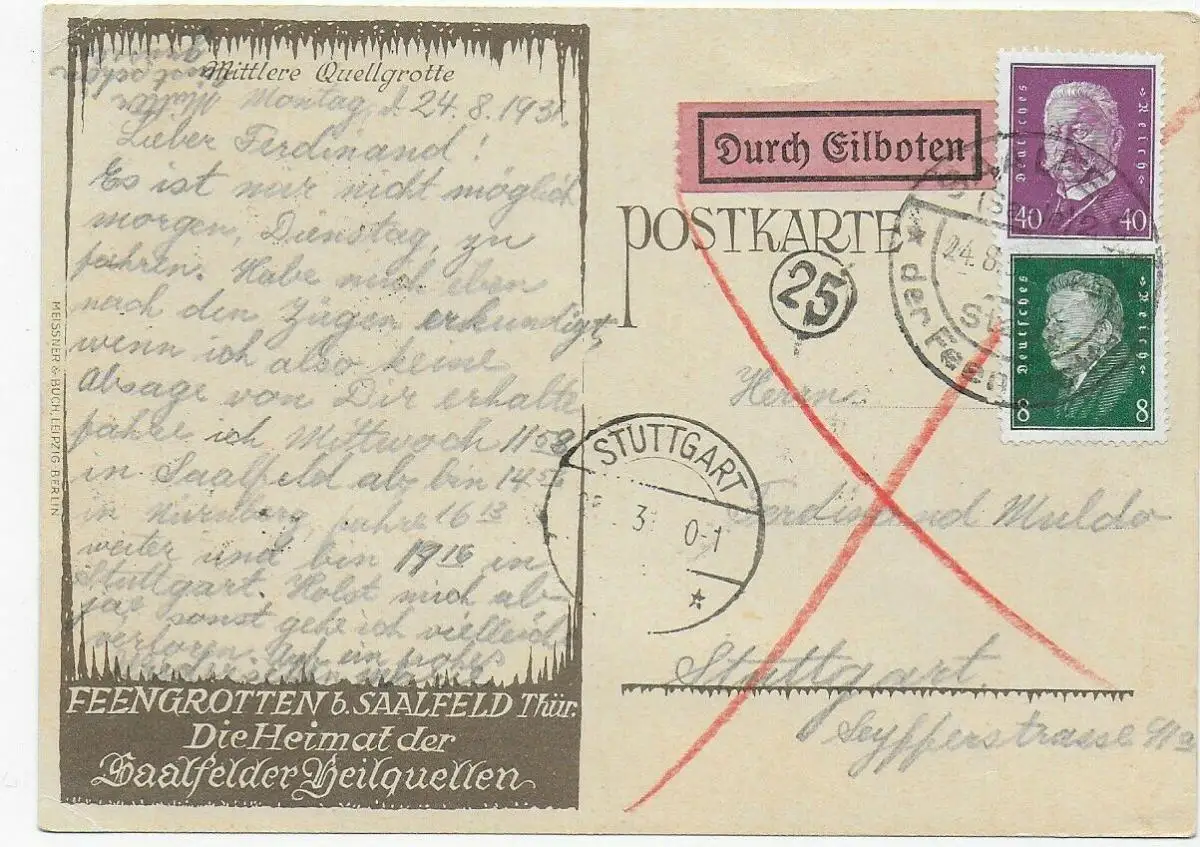 Mittlere Quellgrotte
Mutter
Montag, d. 24.8.1931.
Lieber Ferdinand!
Es ist mir nicht möglich
morgen, Dienstag, zu
fahren. Habe mich eben
nach den Zügen erkundigt,
wenn ich also keine
Absage von Dir erhalte
fahre ich Mittwoch 11 58
in Saalfeld ab, bin 14
in Nürnberg, fahre 16 13
weiter und bin 19 16 in
Stuttgart. Holst mich ab
ja, sonst gehe ich vielleicht
verloren. Auf ein frohes
FEENGROTTEN b. SAALFELD Thür.
Die Heimat der
Saalfelder Heilquellen
MEISSNER & BUCH, LEIPZIG-BERLIN
Durch Eilboten
POSTKARTE
25
Deutsches Reich
40 40
Deutsches Reich
8 8
24.8.
der Feen
STUTTGART
3 0-1
Herrn
Ferdinand Mulda
Stuttgart.
Seyfferstrasse